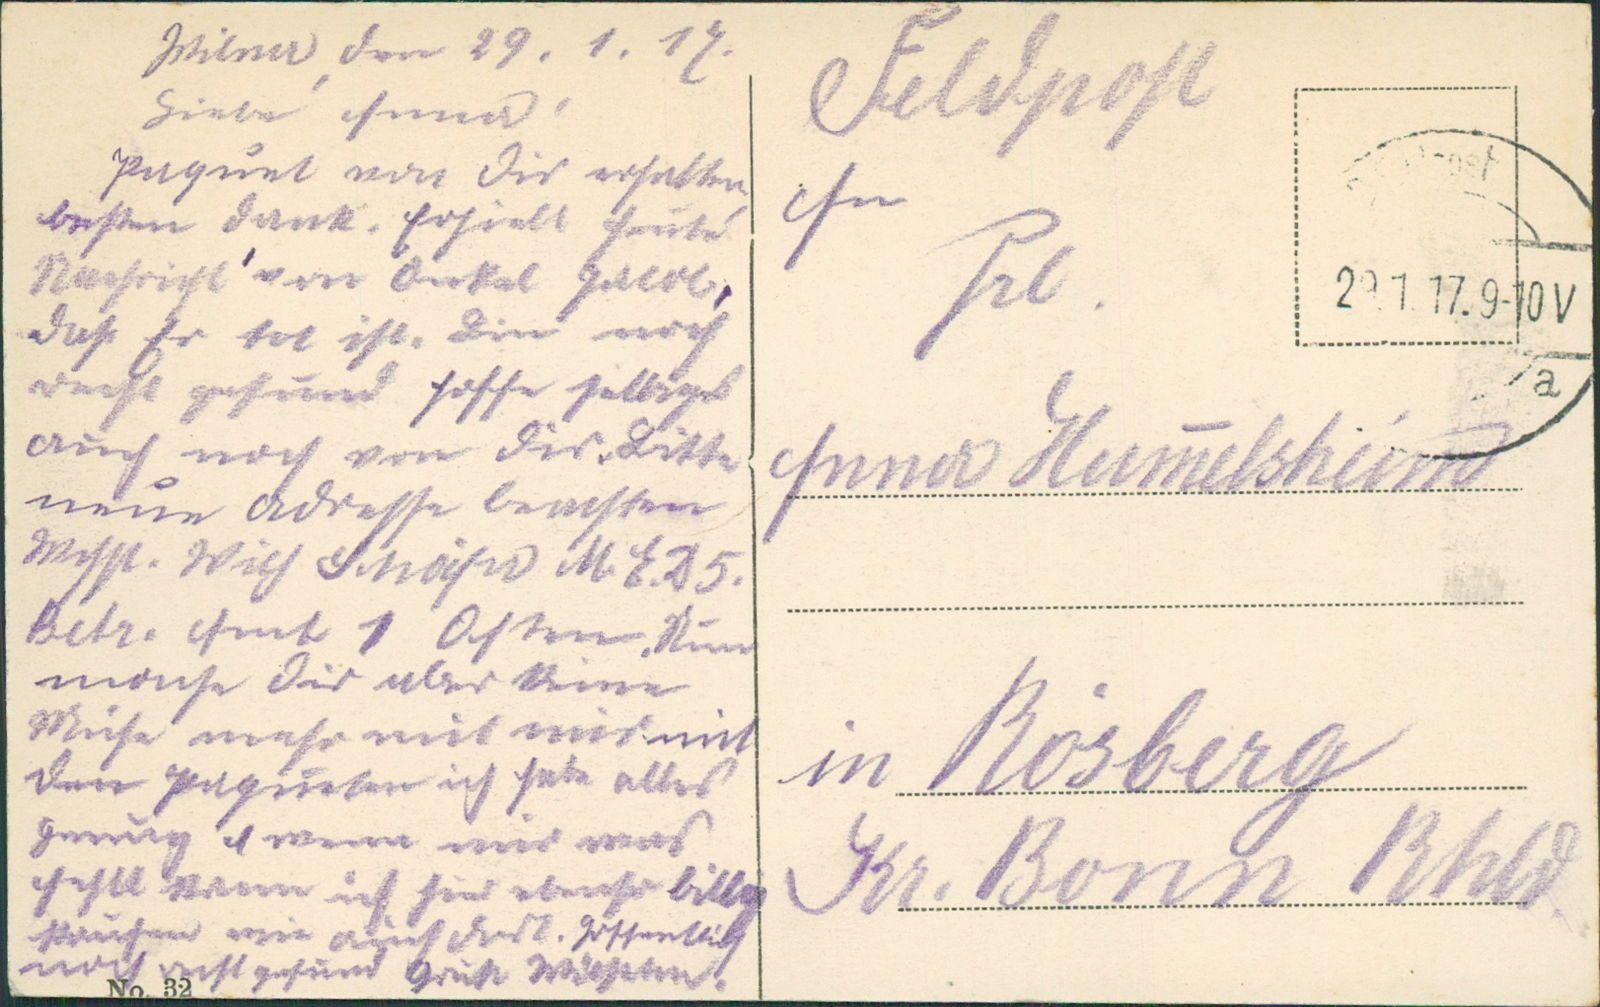 Wilna, den 29. 1. 17.
Liebe Anna!
Paquet von Dir erhalten
besten Dank. Erhielt heute
Nachricht von Onkel Jacob,
daß Er tot ist. Bin noch
recht gesund hoffe selbiges
auch noch von Dir. Bitte
neue Adresse beachten
Wilh M.E.D 5.
Betr. Amt 1 Osten. Nun
mache Dir aber keine
Mühe mehr mit mir mit
den Paqueten ich habe alles
genug & wenn mir was
fehlt kann ich hier ebenso billig
kaufen wie auch dort. Hoffentlich
noch recht gesund Gruß
No. 32
Feldpost
An
Frl.
Anna Hum̅elsheim
in Rösberg
Kr. Bonn Rhld
29.1.17.9-10V
a